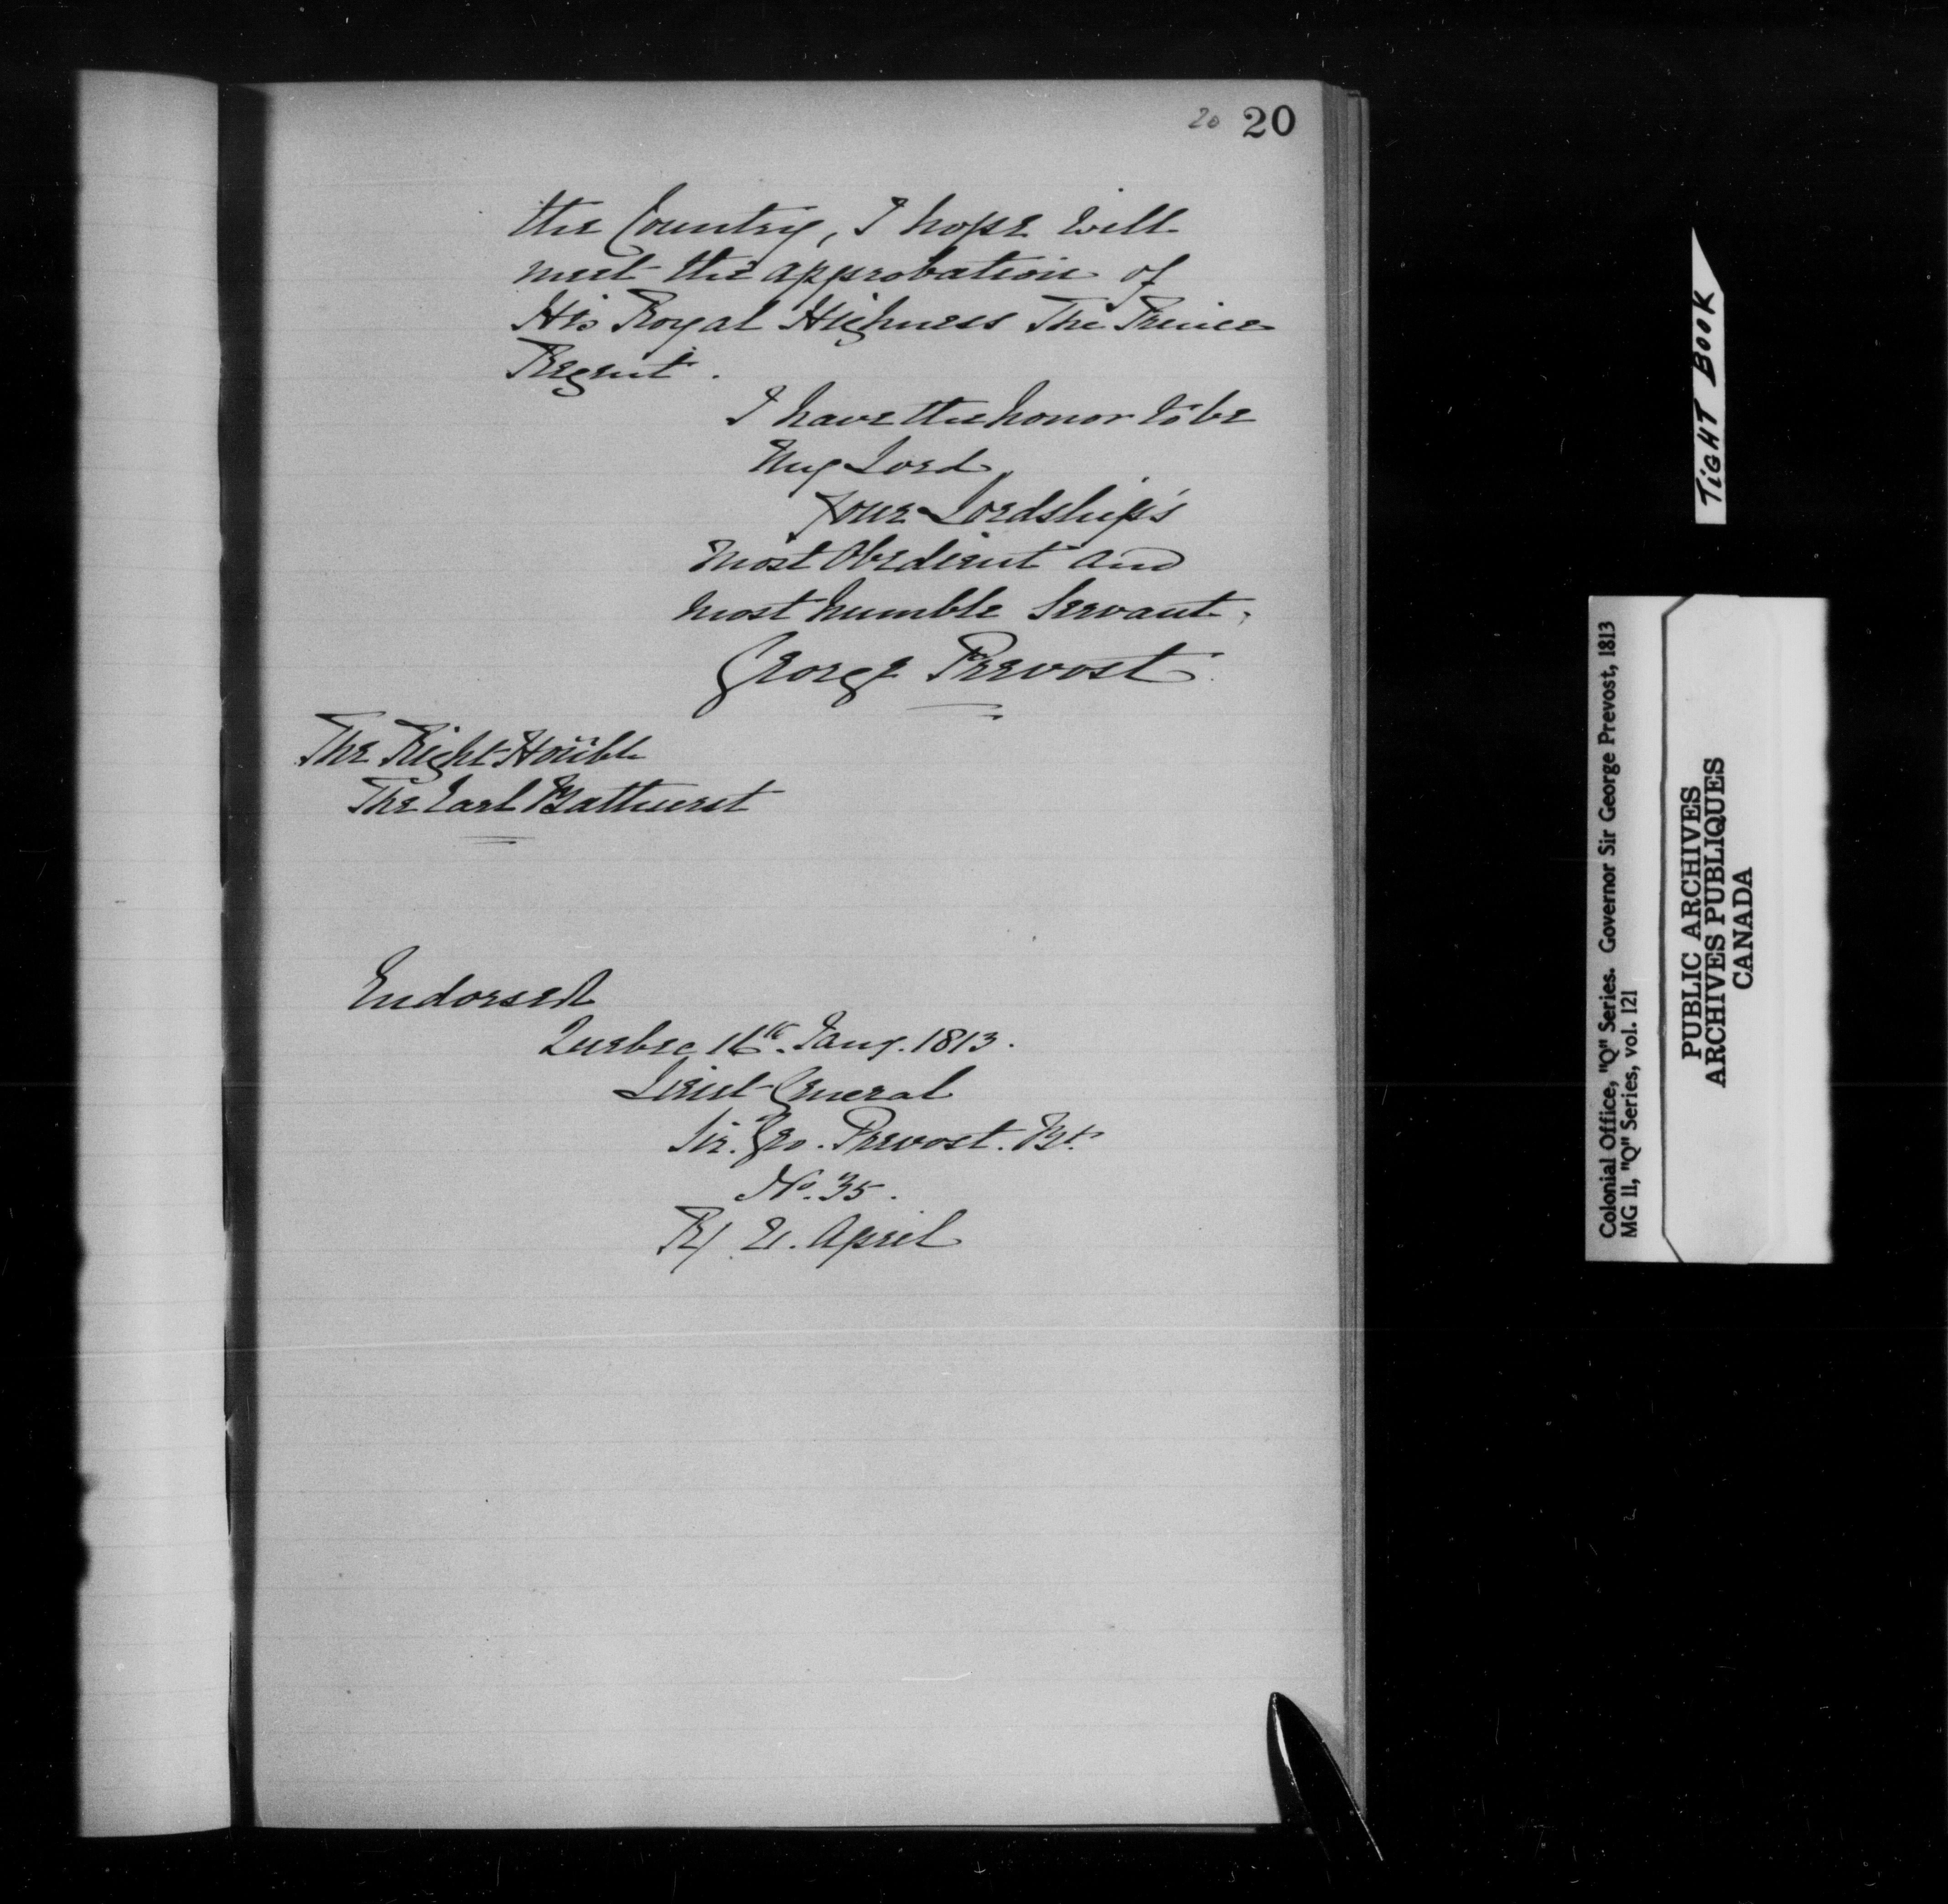 20 20
the Country, I hope will
meet the approbation of
His Royal Highness The Prince
Regent.
I have the honor to be
My Lord,
Your Lordship's
most Obedient and
most humble Servant,
George Prevost.
The Right Honble
The Earl Bathurst
Endorsed
Quebec 16th. Jany. 1813.
Lieut-General
Sir. Geo. Prevost. Bt.
No. 35.
R/ 21. April
TIGHT BOOK
Colonial Office, "Q" Series. Governor Sir George Prevost, 1813
MG 11, "Q" Series, vol. 121
PUBLIC ARCHIVES
ARCHIVES PUBLIQUES
CANADA